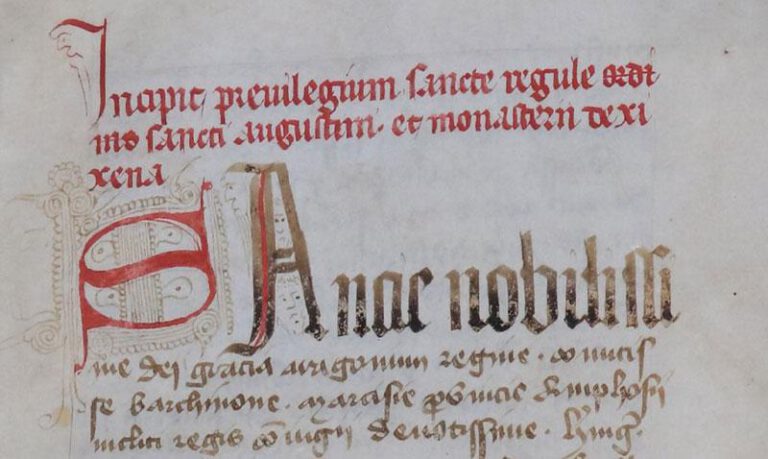 Incipit preuilegium sancte regule ordi
nis sancti augustini. et monasterii de xi
xena
SAncie nobilissi
me dei gracia aragonum regine. comitis
se barchinone. marcisie prouincie. Amphosii
incliti regis coniugii deuotissime.